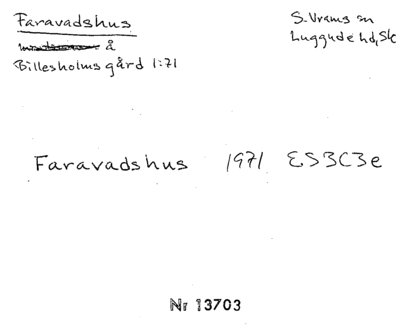 Faravadshus
å
Billesholms gård 1:71
S. Vrams sn
Luggude hd, Sk
Faravadshus 1971 ES3C3e
Nr 13703